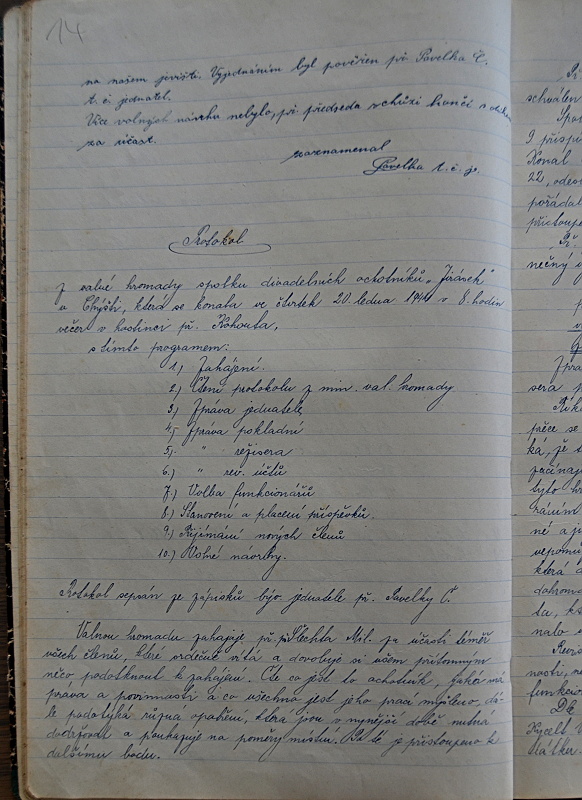 14
na našem jevišti. Vyjednáním byl pověřen př. Pavelka Č.
t. č. jednatel.
Více volných návrhu nebylo, př. předseda schůzi končí s
za účast.
zaznamenal
Pavelka t. č. je.
Protokol
z valné hromady spolku divadelních ochotníků „Jirásek"
v Chýšti, která se konala ve čtvrtek 20. ledna v 8. hodin
večer v hostinci př. Kohouta,
s tímto programem:
1.) Zahájení.
2.) Čtení protokolu z min. val. hromady
3.) Zpráva jednatele
4.) Zpráva pokladní
5.) " režisera
6.) " rev. účtů
7.) Volba funkcionářů
8.) Stanovení a placení příspěvků.
9.) Přijímání nových členů
10.) Volné návrhy.
Protokol sepsán ze zápisků býv. jednatele př. Pavelky Č.
Valnou hromadu zahajuje př. Šlechta Mil. za účasti téměř
všech členů, které srdečně vítá a dovoluje si všem přítomným
něco podotknout k zahájení. Oč co jest to ochotník, jaká má
práva a povinnosti a co všechno jest jeho prací myšleno, dá-
le podotýká různá opatření, která jsou v nynější době nutná
dodržovat a poukazuje na poměry místní. Po té je přistoupeno k
dalšímu bodu.
schválen
9 příspě
Konal
22, odes
pořádal
přistoupe
nečný
sera
přeče se
ká, je
začínaj
tyto
né a
která
dohrom
da,
nalo
nosti,
funkcio